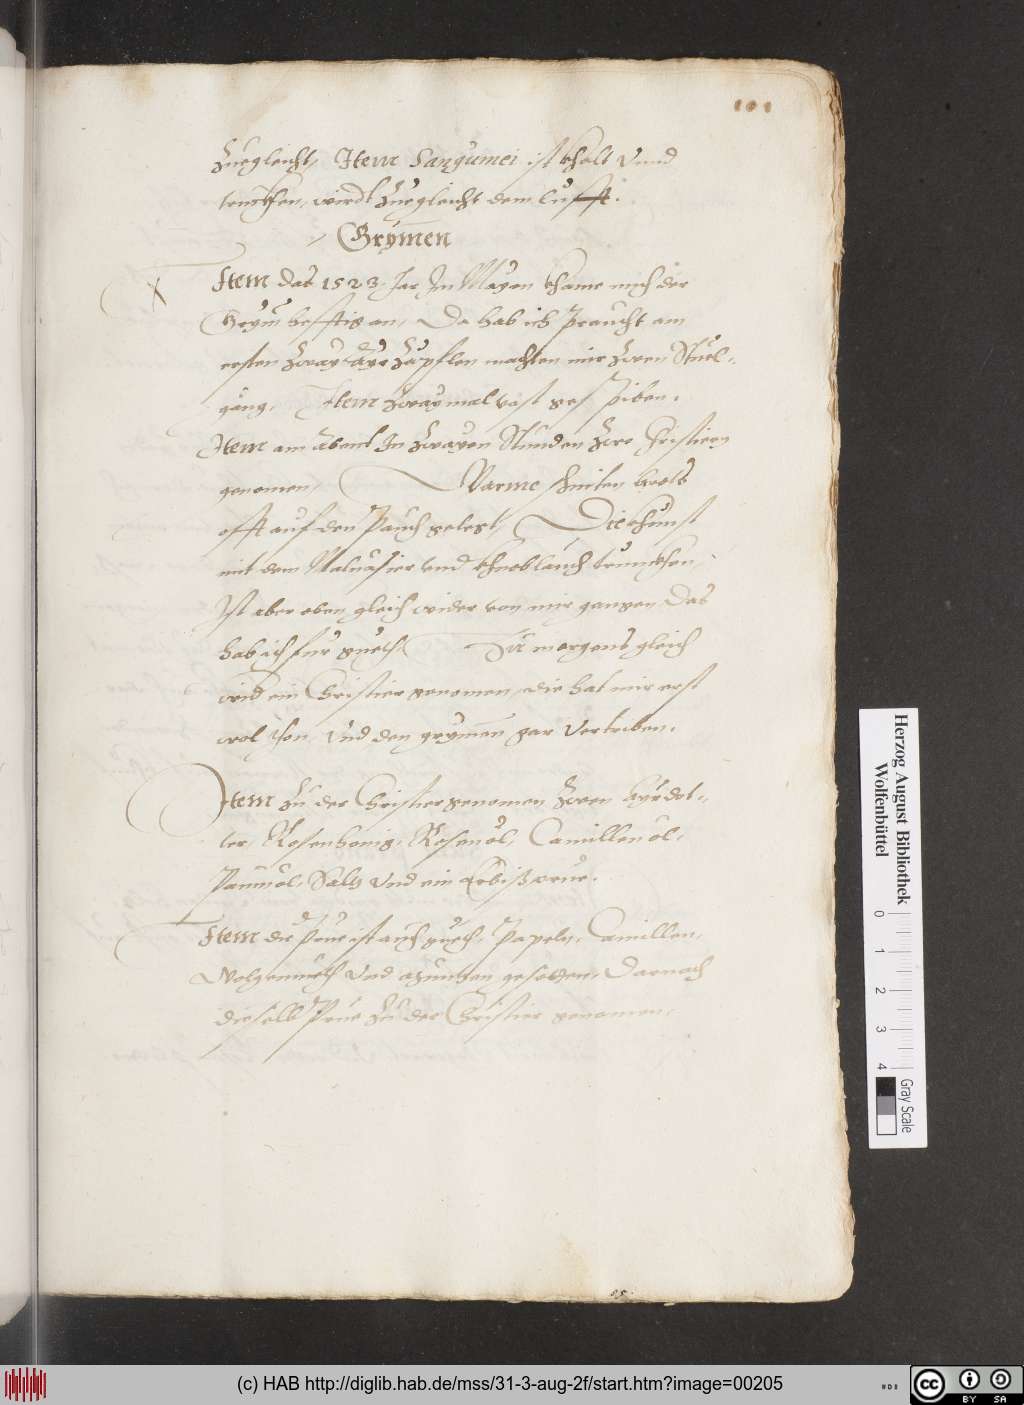 101
Zuegleicht, Item Sangumei ist khalt vnnd
truckhen, wirdt Zuegleicht dem lufft.
Grymen
Item das 1523 Jar Jn Mayen khame mich der
Grym hefftig an, Da hab ich praucht am
ersten Zway Ayr Zäpflen machten mir Zwen Stuel-
gäng. Item Zwaymal vast spiben.
Item am abent Jn Zwayen Stunden Zwo Cristiern
genomen, Warme
offt auf den pauch gelegt, Die khunst
mit dem Maluasier vnd khnoblauch trunckhen,
Jst aber eben gleich wider von mir gangen Das
hab ich für guet Zu morgens gleich
wid ein Cristier genomen, die hat mir erst
wol thon vnd den grymen gar vertriben.
Item Zu der Cristier genomen Zwen Ayrdot-
ter, Rosenhonig, Rosenöl, Camillenöl,
Paumöl, Saltz vnd ein Arbisprue.
Item die prue ist auch guet, Papeln, Camillen,
Wolgemuet vnd gesotten, Darnach
dieselb Prue Zu der Cristier genomen.
Herzog August Bibliothek
Wolfenbüttel
0 1 2 3 4
Gray Scale
(c) HAB http://diglib.hab.de/mss/31-3-aug-2f/start.htm?image=00205
cc BY SA